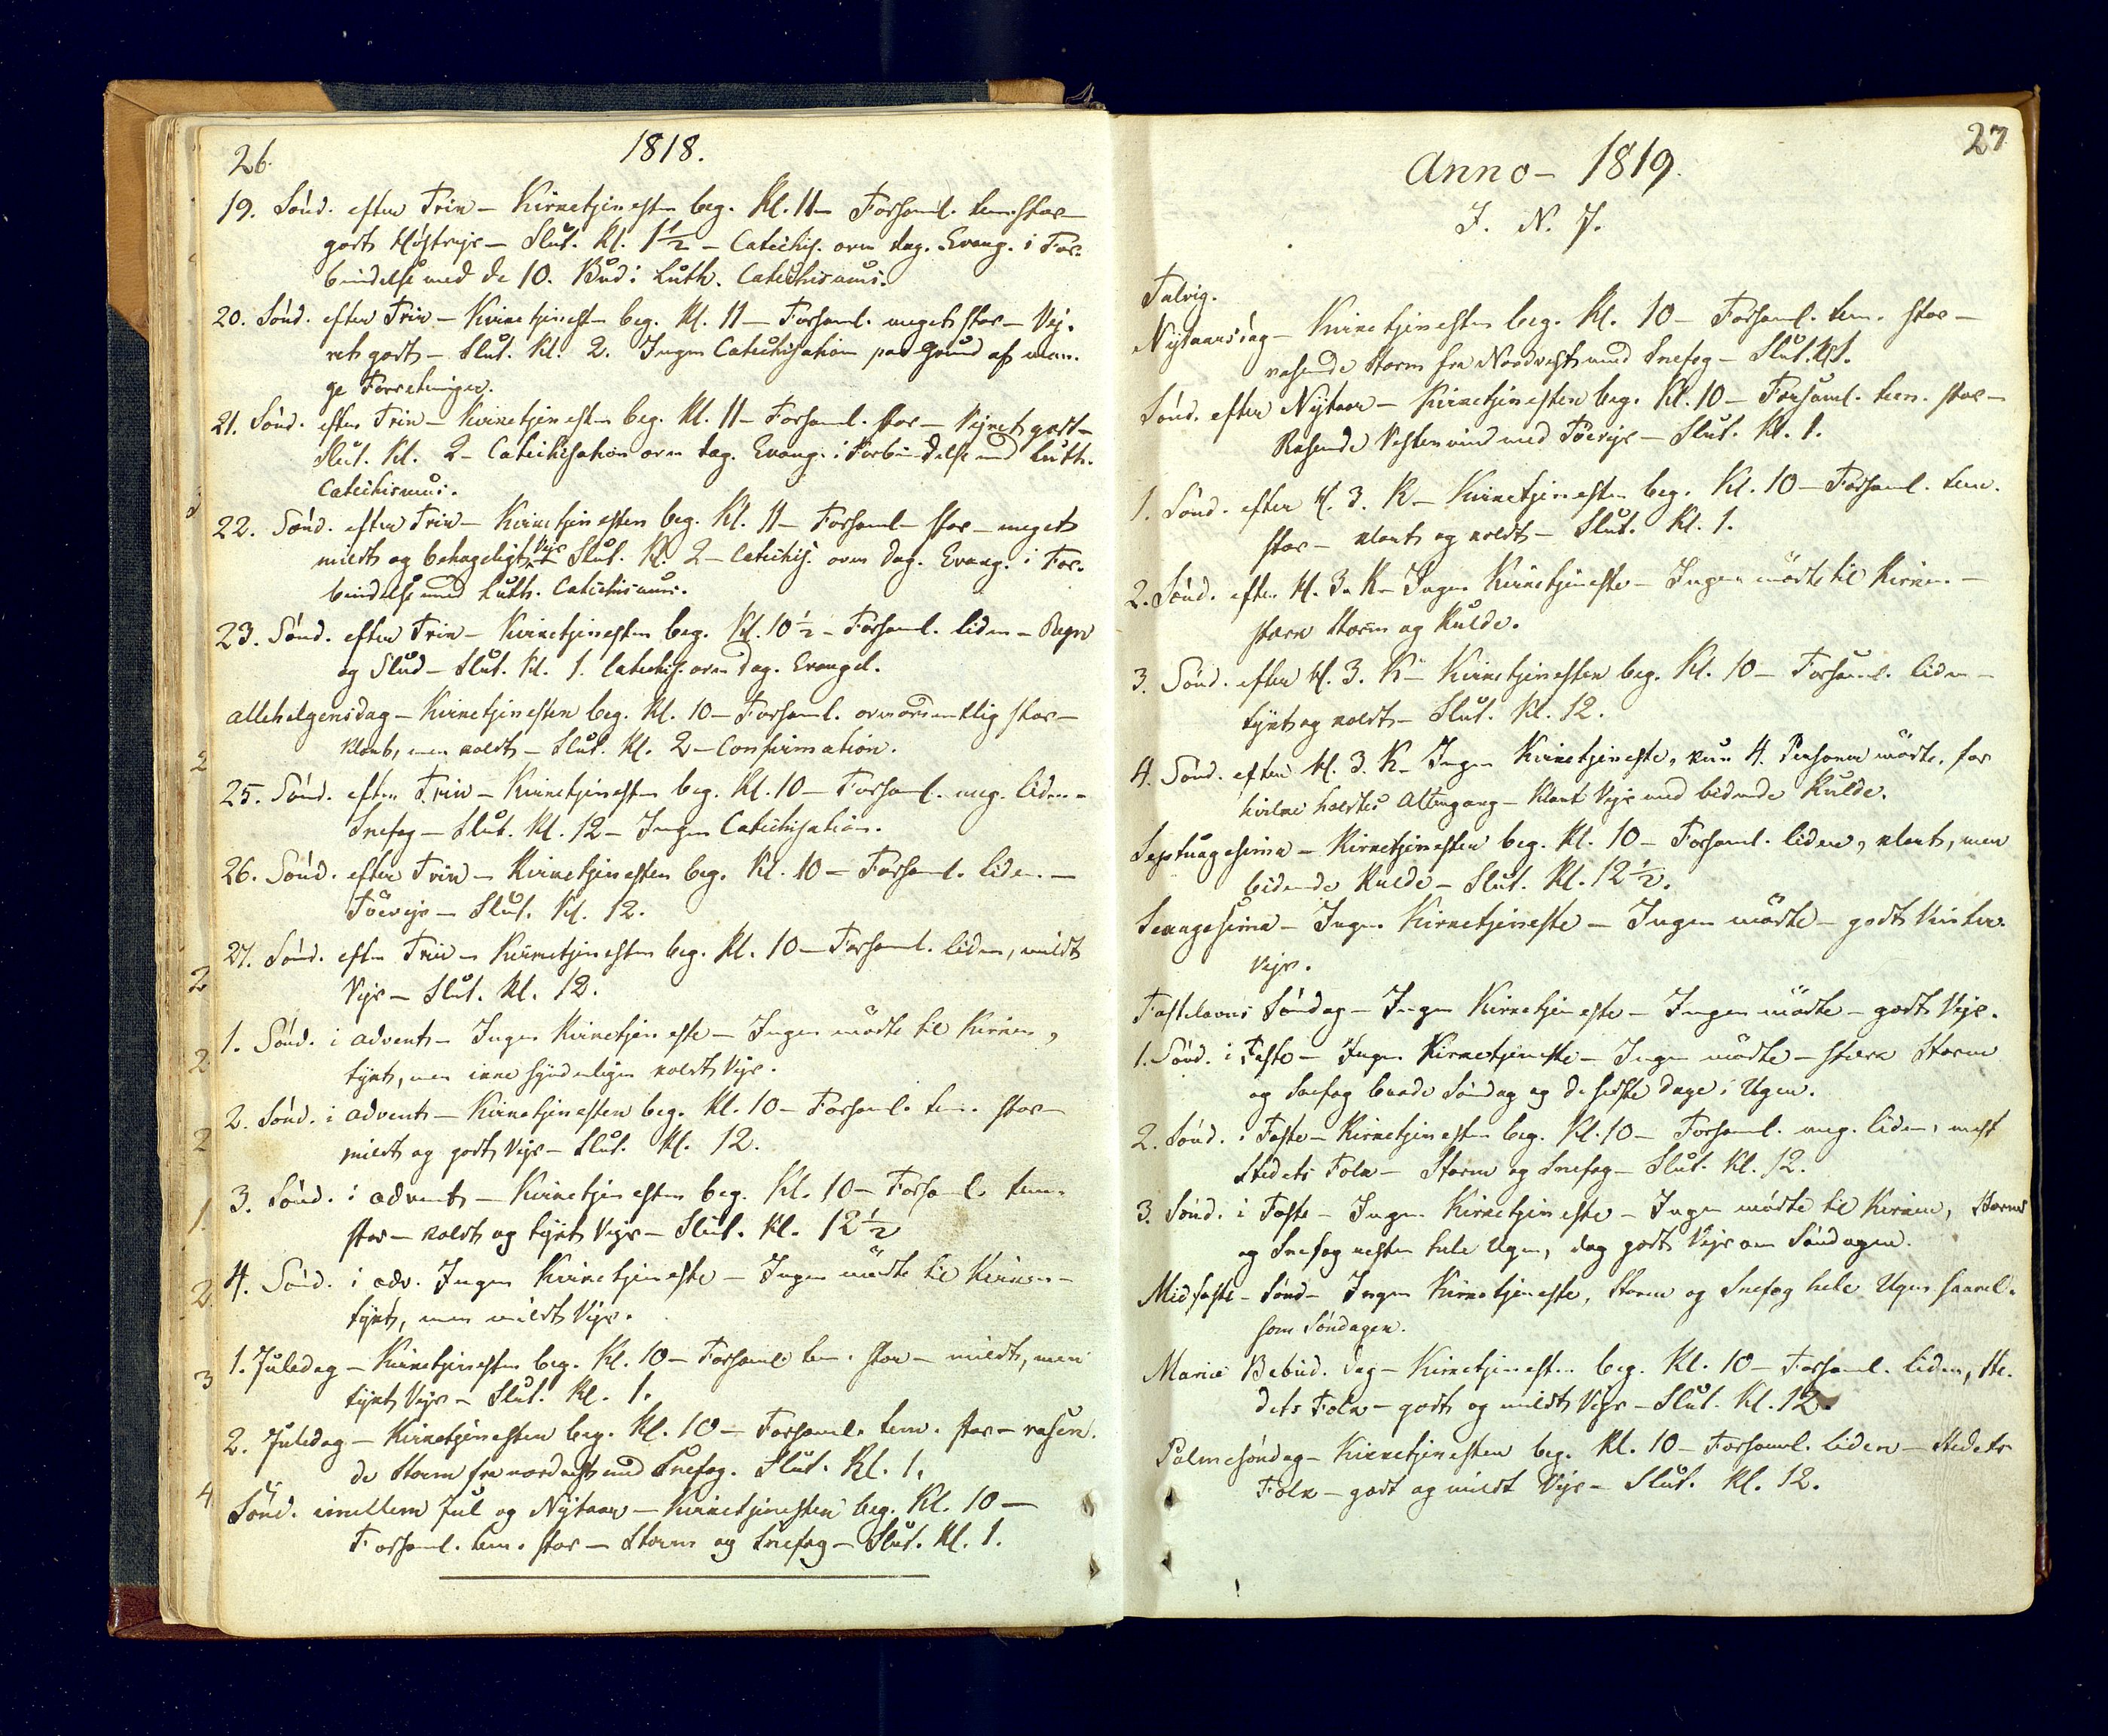 26.
1818.
19. Sönd. efter Trin – Kirketjenesten beg. Kl. 11 – Forsaml. tem. stor –
godt Höstvejr – Slut. Kl. 1 1/2 – Catechis. over dag. Evang. i For-
bindelse med de 10. Bud i Luth. Catechismus.
20. Sönd. efter Trin – Kirketjenesten beg. Kl. 11 – Forsaml. meget stor – Vej-
ret godt – Slut. Kl. 2. Ingen Catechisation paa Grund af man-
ge Forretninger.
21. Sönd. efter Trin – Kirketjenesten beg. Kl. 11 – Forsaml. stor – Vejret godt –
Slut. Kl. 2 – Catechisation over dag. Evang. i Forbindelse med Luth.
Catechismus.
22. Sönd. efter Trin – Kirketjenesten beg. Kl. 11 – Forsaml. stor – meget
mildt og behageligt Vejr Slut. Kl. 2 – Catechis. over dag. Evang. i For-
bindelse med Luth. Catechismus.
23. Sönd. efter Trin – Kirketjenesten beg. Kl. 10 1/2 – Forsaml. liden – Regn
og Slud – Slut. Kl. 1. Catechis. over dag. Evangel.
Allehelgensdag – Kirketjenesten beg. Kl. 10 – Forsaml. overordentlig stor –
klart, men koldt – Slut. Kl. 2 – Confirmation.
25. Sönd. efter Trin – Kirketjenesten beg. Kl. 10 – Forsaml. meg. liden –
Snefog – Slut. Kl. 12 – Ingen Catechisation.
26. Sönd. efter Trin – Kirketjenesten beg. Kl. 10 – Forsaml. liden –
Töevejr – Slut. Kl. 12.
27. Sönd. efter Trin – Kirketjenesten beg. Kl. 10 – Forsaml. liden, mildt
Vejr – Slut. Kl. 12.
1. Sönd. i Advent – Ingen Kirketjeneste – Ingen mödte til Kirken,
tykt, men ikke synderligen koldt Vejr.
2. Sönd. i Advent – Kirketjenesten beg. Kl. 10 – Forsaml. tem. stor –
mildt og godt Vejr – Slut. Kl. 12.
3. Sönd. i Advent – Kirketjenesten beg. Kl. 10 – Forsaml. tem.
stor – koldt og tykt Vejr – Slut. Kl. 12 1/2
4. Sönd. i adv. Ingen Kirketjeneste – Ingen mödte til Kirken –
tykt, men mildt Vejr.
1. Juledag – Kirketjenesten beg. Kl. 10 – Forsaml. tem. stor – mildt, men
tykt Vejr – Slut. Kl. 1.
2. Juledag – Kirketjenesten beg. Kl. 10 – Forsaml. tem. stor – rasen-
de Storm fra nordvest med Snefog. Slut. Kl. 1.
Sönd. imellem Jul og Nytaar – Kirketjenesten beg. Kl. 10 –
Forsaml. tem. stor – Storm og Snefog – Slut. Kl. 1.
27
Anno – 1819.
I. N. J.
Talvig.
Nytaarsdag – Kirketjenesten beg. Kl. 10 – Forsaml. tem. stor –
rasende Storm fra Nordvest med Snefog – Slut. Kl. 1.
Sönd. efter Nytaar – Kirketjenesten beg. Kl. 10 – Forsaml. tem. stor –
Rasende Vestenvind med Töevejr – Slut. Kl. 1.
1. Sönd. efter H. 3. K – Kirketjenesten beg. Kl. 10 – Forsaml. tem.
stor – klart og koldt – Slut. Kl. 1.
2. Sönd. efter H. 3. K – Ingen Kirketjeneste – Ingen mödte til Kirken –
stærk Storm og Kulde.
3. Sönd. efter H. 3. K – Kirketjenesten beg. Kl. 10 – Forsaml. liden –
tykt og koldt – Slut. Kl. 12.
4. Sönd. efter H. 3. K – Ingen Kirketjeneste, kun 4. Personer mödte, for
hvilke holdtes Altergang – Klart Vejr med bidende Kulde.
Septuagesima – Kirketjenesten beg. Kl. 10 – Forsaml. liden, klart, men
bidende Kulde – Slut. Kl. 12 1/2.
Sexagesima – Ingen Kirketjeneste – Ingen mödte – godt Vinter-
vejr.
Fastelavns Söndag – Ingen Kirketjeneste – Ingen mödte – godt Vejr.
1. Sönd. i Faste – Ingen Kirketjeneste – Ingen mödte – stærk Storm
og Snefog baade Söndag og de fleste Dage i Ugen.
2. Sönd. i Faste – Kirketjenesten beg. Kl. 10 – Forsaml. meg. liden, mest
Stedets Folk – Storm og Snefog – Slut. Kl. 12.
3. Sönd. i Faste – Ingen Kirketjeneste – Ingen mödte til Kirken, Storm
og Snefog næsten hele Ugen, dog godt Vejr om Söndagen.
Midfaste – Sönd – Ingen Kirketjeneste, Storm og Snefog hele Ugen saavel-
som Söndagen.
Mariæ Bebud. dag – Kirketjenesten beg. Kl. 10 – Forsaml. liden, Ste-
dets Folk – godt og mildt Vejr – Slut. Kl. 12.
Palmesöndag – Kirketjenesten beg. Kl. 10 – Forsaml. liden – Stedets
Folk – godt og mildt Vejr – Slut. Kl. 12.